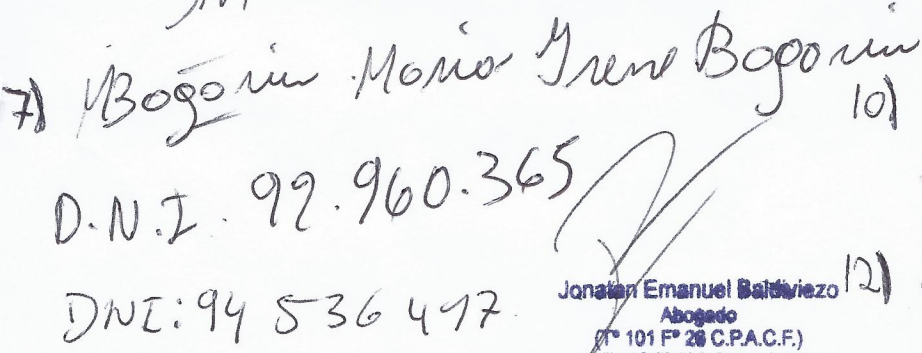 7) Bogorin Maria Irene Bogorin
10)
D.N.I. 92.960.365
12)
DNI: 94 536 417
Jonatan Emanuel Baldiviezo
Abogado
(T° 101 F° 26 C.P.A.C.F.)